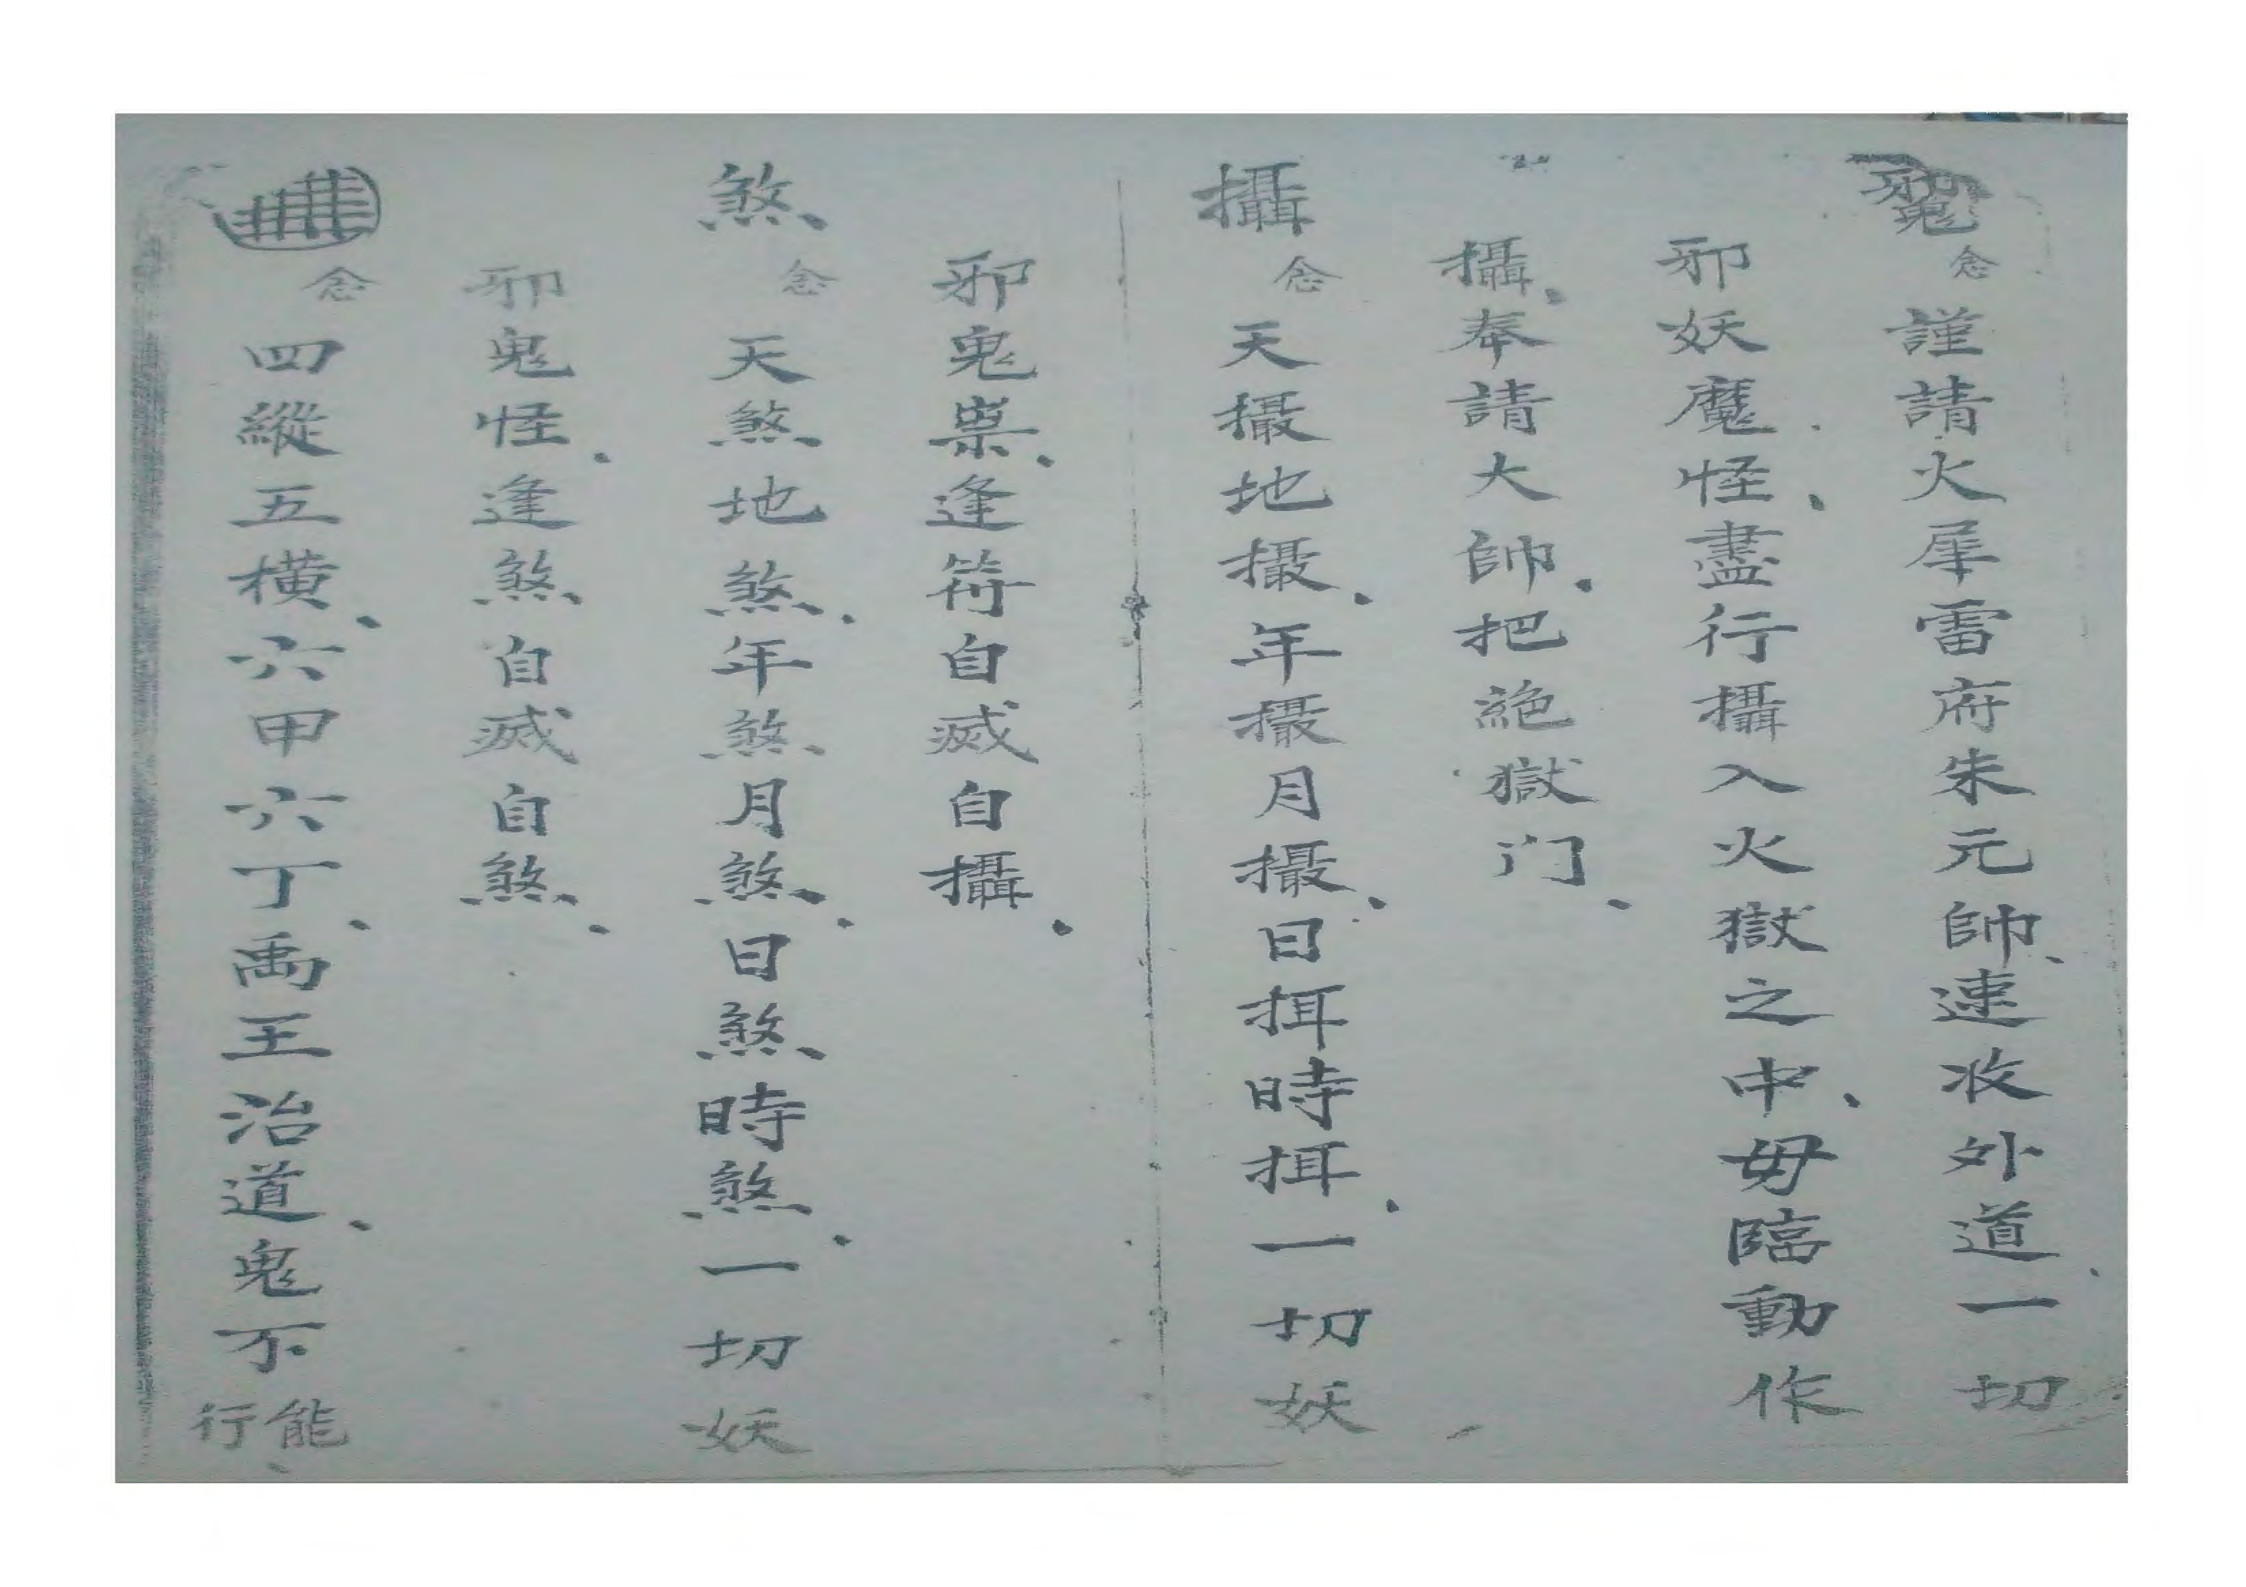 念 謹請火犀雷府朱元帥、速收外道、一切
邪妖魔怪、盡行攝入火獄之中、毋臨動作
攝、奉請大帥、把絕獄门、
攝 念 天撮地撮、年撮月撮、日挕時挕、一切妖
邪鬼祟、逢符自滅自攝、
煞 念 天煞地煞、年煞月煞、日煞時煞、一切妖
邪鬼怪、逢煞自滅自煞、
念 四縱五橫、六甲六丁、禹王治道、鬼不能行、